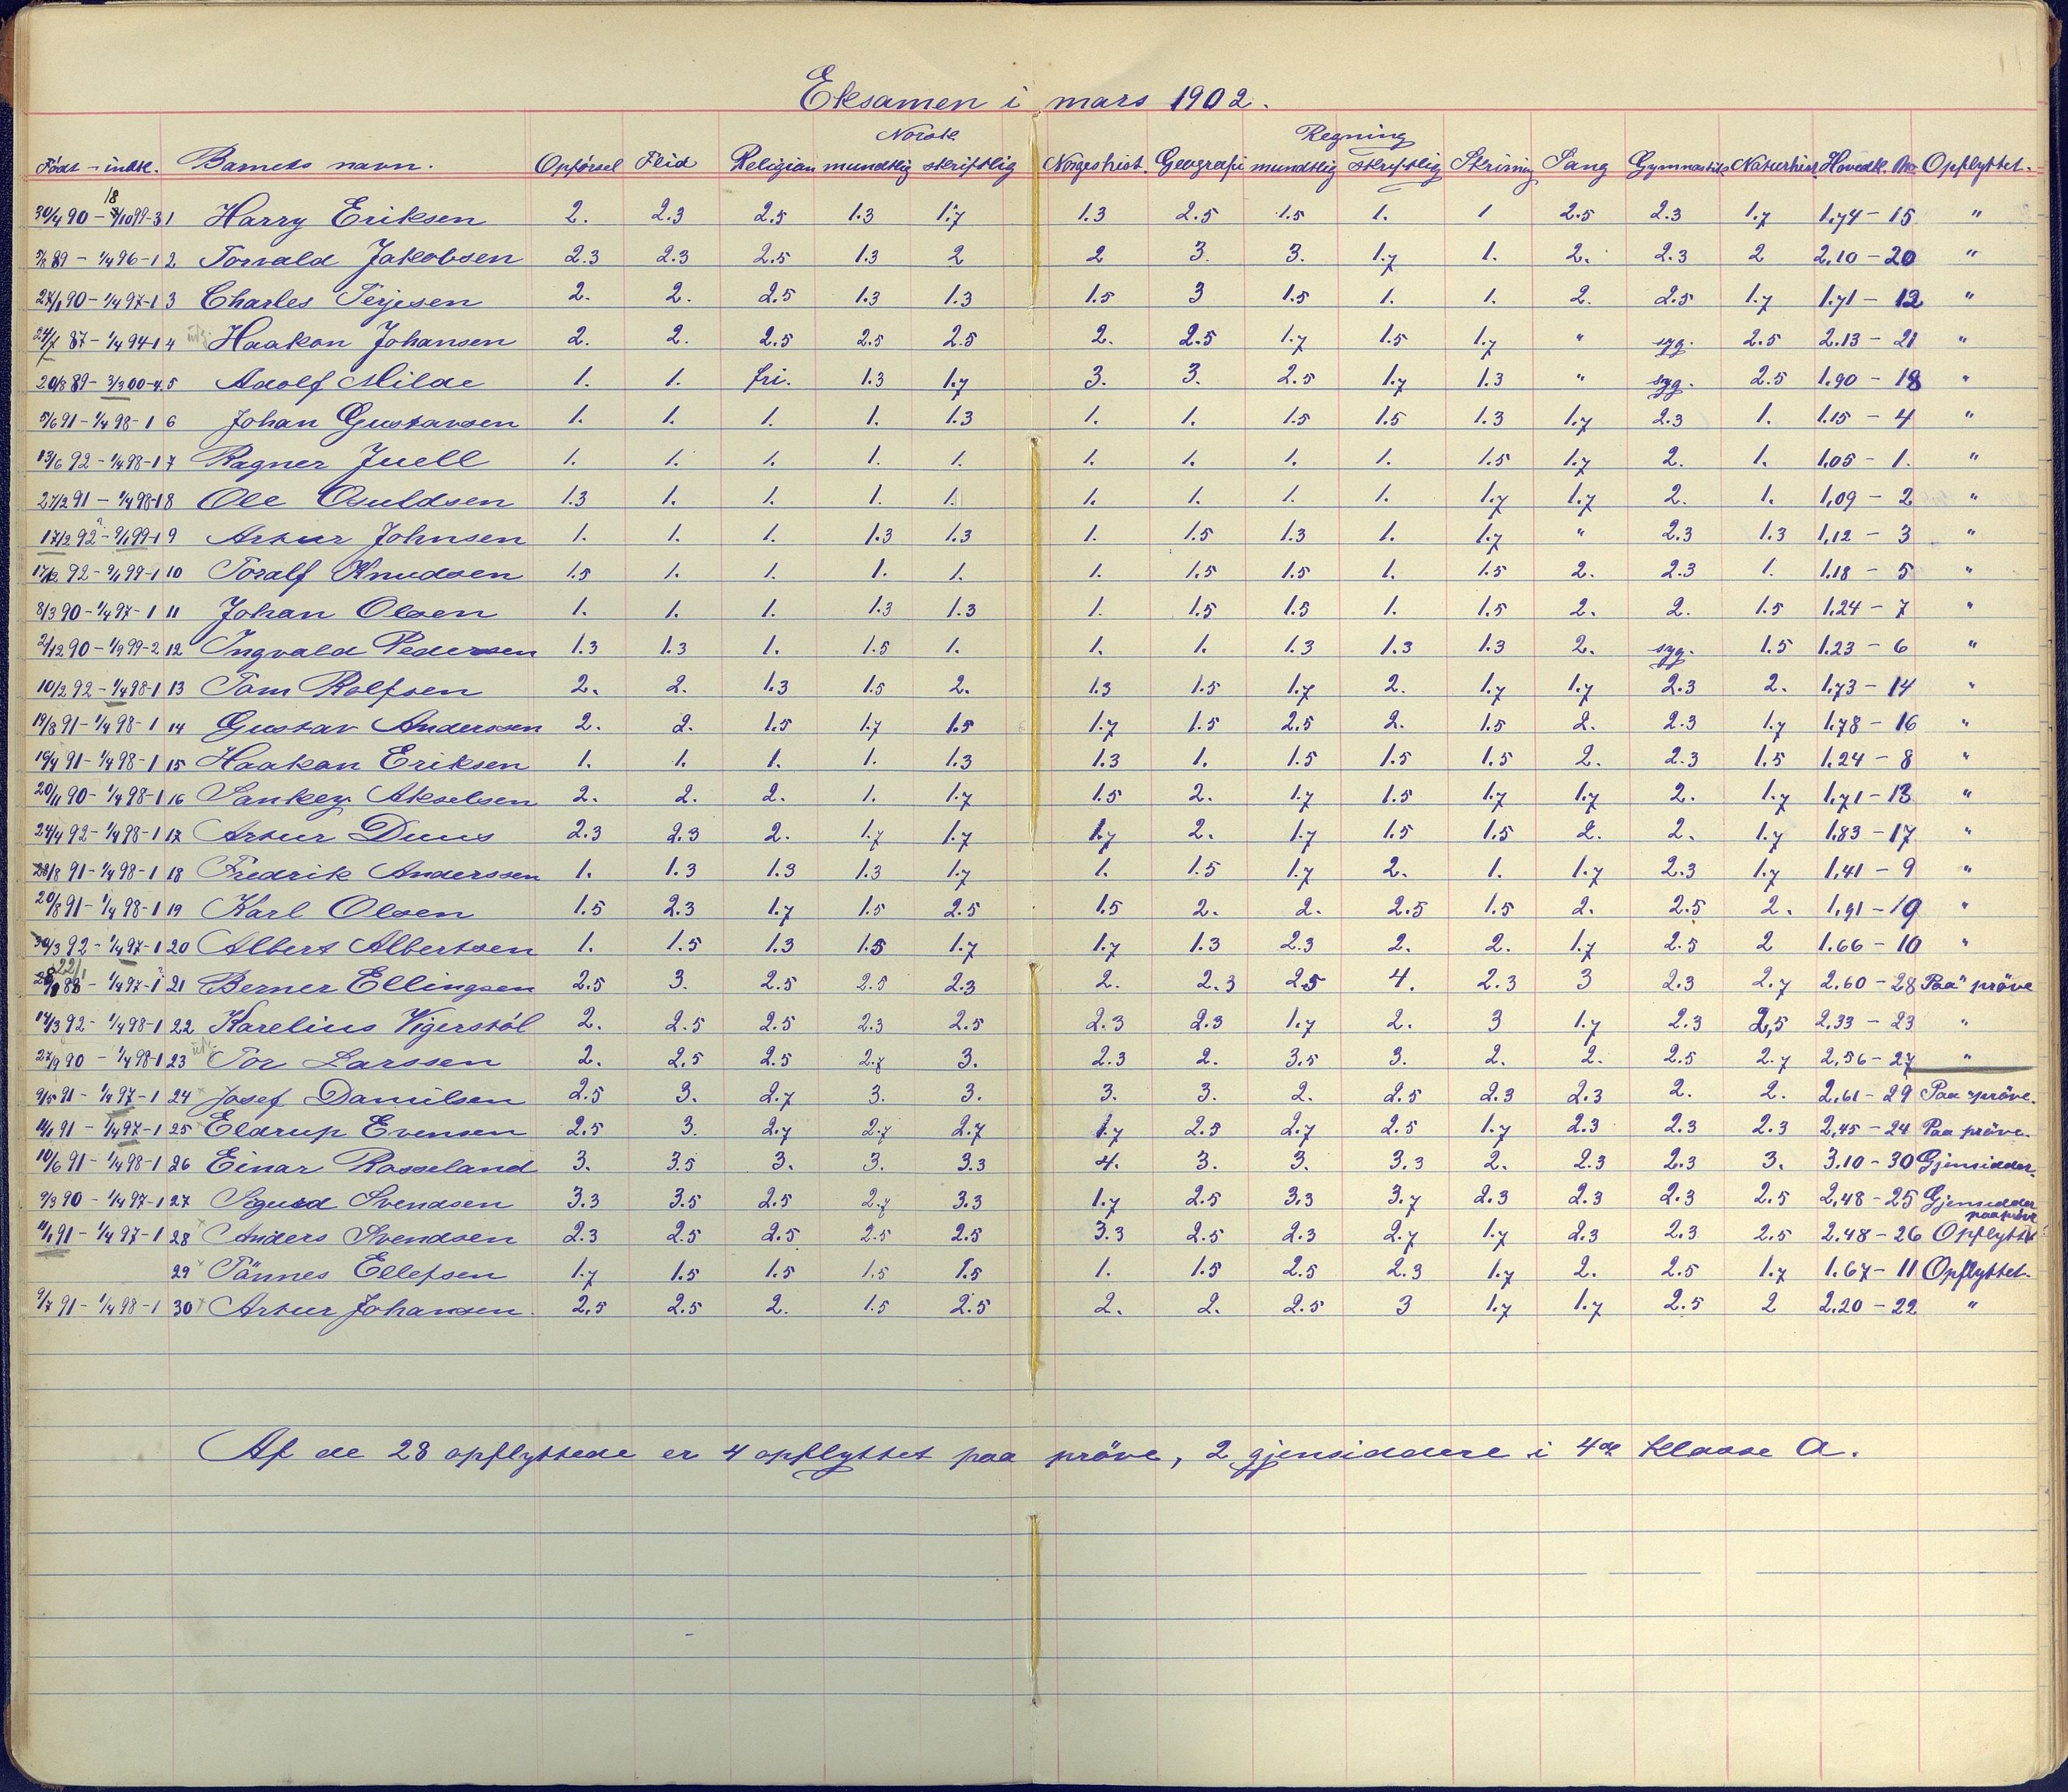 Eksamen i mars 1902.
Norsk Regning
Født - indsk. Barnets navn. Opførsel Flid Religion mundtlig skriftlig Norgeshist. Geografi mundtlig skriftlig Skrivning Sang Gymnastik Naturhist. Hovedk. No Opflyttet.
30/4 90 - 18/10 99-3 1 Harry Eriksen 2. 2.3 2.5 1.3 1.7 1.3 2.5 1.5 1. 1 2.5 2.3 1.7 1.74 - 15 "
89 - 1/4 96-1 2 Torvald Jakobsen 2.3 2.3 2.5 1.3 2 2 3. 3. 1.7 1. 2. 2.3 2 2.10 - 20 "
27/1 90 - 1/4 97-1 3 Charles Terjesen 2. 2. 2.5 1.3 1.3 1.5 3 1.5 1. 1. 2. 2.5 1.7 1.71 - 12 "
24/7 87 - 1/4 94-1 4 Haakon Johansen 2. 2. 2.5 2.5 2.5 2. 2.5 1.7 1.5 1.7 " syg. 2.5 2.13 - 21 "
20/8 89 - 3/3 00-4 5 Adolf Milde 1. 1. fri. 1.3 1.7 3. 3. 2.5 1.7 1.3 " syg. 2.5 1.90 - 18 "
5/6 91 - 1/4 98-1 6 Johan Gustavsen 1. 1. 1. 1. 1.3 1. 1. 1.5 1.5 1.3 1.7 2.3 1. 1.15 - 4 "
13/6 92 - 1/4 98-1 7 Ragner Juell 1. 1. 1. 1. 1. 1. 1. 1. 1. 1.5 1.7 2. 1. 1.05 - 1. "
27/2 91 - 1/4 98-1 8 Ole Osuldsen 1.3 1. 1. 1. 1. 1. 1. 1. 1. 1.7 1.7 2. 1. 1.09 - 2 "
17/2 92 - 9/1 99-1 9 Artur Johnsen 1. 1. 1. 1.3 1.3 1. 1.5 1.3 1. 1.7 " 2.3 1.3 1.12 - 3 "
17/12 92 - 9/1 99-1 10 Toralf Knudsen 1.5 1. 1. 1. 1. 1. 1.5 1.5 1. 1.5 2. 2.3 1. 1.18 - 5 "
8/3 90 - 1/4 97-1 11 Johan Olsen 1. 1. 1. 1.3 1.3 1. 1.5 1.5 1. 1.5 2. 2. 1.5 1.24 - 7 "
2/12 90 - 1/9 99-2 12 Ingvald Pedersen 1.3 1.3 1. 1.5 1. 1. 1. 1.3 1.3 1.3 2. syg. 1.5 1.23 - 6 "
10/2 92 - 1/4 98-1 13 Tom Rolfsen 2. 2. 1.3 1.5 2. 1.3 1.5 1.7 2. 1.7 1.7 2.3 2. 1.73 - 14 "
19/8 91 - 1/4 98-1 14 Gustav Anderssen 2. 2. 1.5 1.7 1.5 1.7 1.5 2.5 2. 1.5 2. 2.3 1.7 1.78 - 16 "
19/4 91 - 1/4 98-1 15 Haakon Eriksen 1. 1. 1. 1. 1.3 1.3 1. 1.5 1.5 1.5 2. 2.3 1.5 1.24 - 8 "
20/11 90 - 1/4 98-1 16 Sankey Akselsen 2. 2. 2. 1. 1.7 1.5 2. 1.7 1.5 1.7 1.7 2. 1.7 1.71 - 13 "
24/4 92 - 1/4 98-1 17 Artur Duus 2.3 2.3 2. 1.7 1.7 1.7 2. 1.7 1.5 1.5 2. 2. 1.7 1.83 - 17 "
28/8 91 - 1/4 98-1 18 Fredrik Anderssen 1. 1.3 1.3 1.3 1.7 1. 1.5 1.7 2. 1. 1.7 2.3 1.7 1.41 - 9 "
20/8 91 - 1/4 98-1 19 Karl Olsen 1.5 2.3 1.7 1.5 2.5 1.5 2. 2. 2.5 1.5 2. 2.5 2. 1.91 - 19 "
30/3 92 - 1/4 97-1 20 Albert Albertsen 1. 1.5 1.3 1.5 1.7 1.7 1.3 2.3 2. 2. 1.7 2.5 2 1.66 - 10 "
22/1 88 - 1/4 97-1 21 Berner Ellingsen 2.5 3. 2.5 2.5 2.3 2. 2.3 2.5 4. 2.3 3 2.3 2.7 2.60 - 28 Paa prøve
14/3 92 - 1/4 98-1 22 Karelius Vigerstøl 2. 2.5 2.5 2.3 2.5 2.3 2.3 1.7 2. 3 1.7 2.3 2,5 2.33 - 23 "
27/9 90 - 1/4 98-1 23 Tor Larssen 2. 2.5 2.5 2.7 3. 2.3 2. 3.5 3. 2. 2. 2.5 2.7 2.56 - 27 "
9/5 91 - 1/4 97-1 24 Josef Danilsen 2.5 3. 2.7 3. 3. 3. 3. 2. 2.5 2.3 2.3 2. 2. 2.61 - 29 Paa prøve.
11/1 91 - 1/4 97-1 25 Eldrup Evensen 2.5 3. 2.7 2.7 2.7 1.7 2.5 2.7 2.5 1.7 2.3 2.3 2.3 2.45 - 24 Paa prøve.
10/6 91 - 1/4 98-1 26 Einar Rosseland 3. 3.5 3. 3. 3.3 4. 3. 3. 3.3 2. 2.3 2.3 3. 3.10 - 30 Gjensidder.
9/3 90 - 1/4 97-1 27 Sigurd Svendsen 3.3 3.5 2.5 2.7 3.3 1.7 2.5 3.3 3.7 2.3 2.3 2.3 2.5 2.48 - 25 Gjensidder
paa prøve
11/1 91 - 1/4 97-1 28 Anders Svendsen 2.3 2.5 2.5 2.5 2.5 3.3 2.5 2.3 2.7 1.7 2.3 2.3 2.5 2.48 - 26 Opflyttet
29 Tønnes Ellefsen 1.7 1.5 1.5 1.5 1.5 1. 1.5 2.5 2.3 1.7 2. 2.5 1.7 1.67 - 11 Opflyttet.
9/7 91 - 1/4 98-1 30 Artur Johansen. 2.5 2.5 2. 1.5 2.5 2. 2. 2.5 3 1.7 1.7 2.5 2 2.20 - 22 "
Af de 28 opflyttede er 4 opflyttet paa prøve, 2 gjensiddere i 4de klasse A.